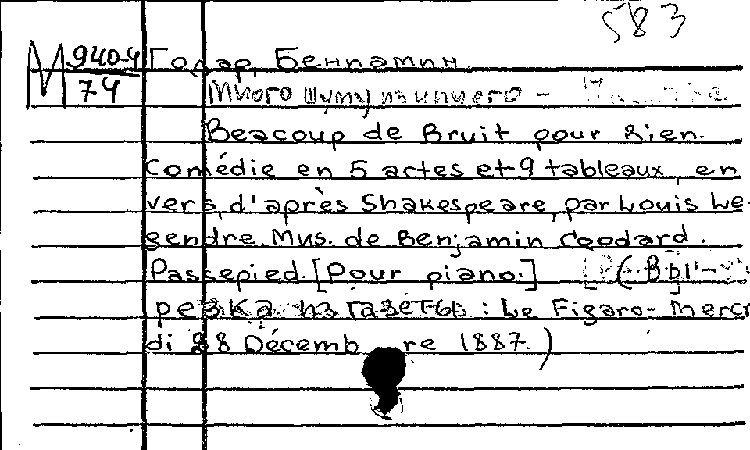 583
М 940-4 Годар, Бенпамин
74 Много шуму из ничего -
Beacoup de Bruit pour Rien.
Comédie en 5 actes et 9 tableaux, en
vers, d'après Shakespeare, par Louis Le-
gendre. Mus. de Benjamin Goodard.
Passepied. [Pour piano.] (Вы-
резка из газеты: Le Figaro- Mercr
di 28 Décemb re 1887.)